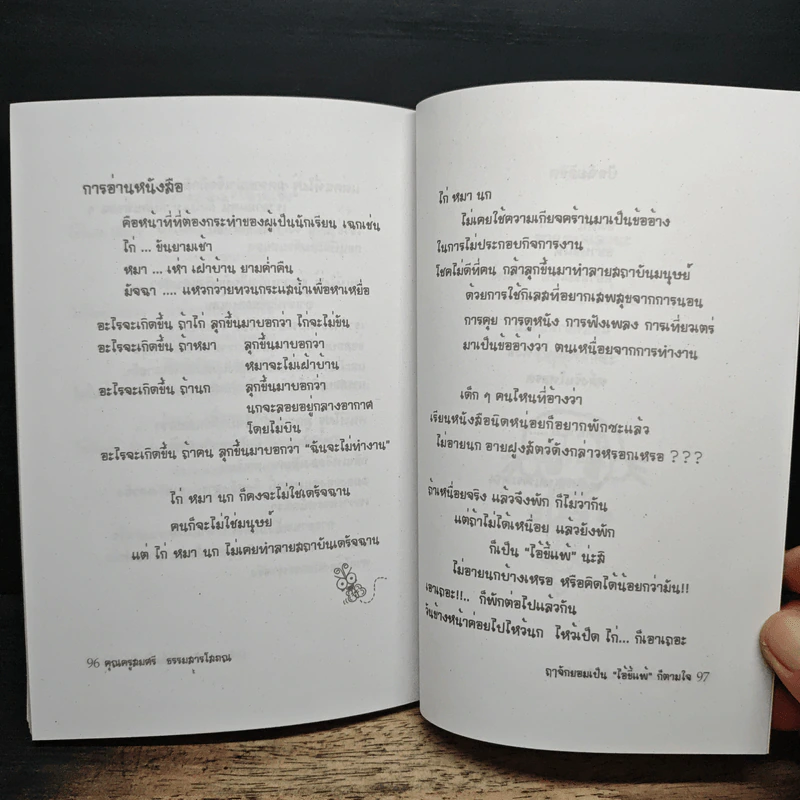 การอ่านหนังสือ
คือหน้าที่ที่ต้องกระทำของผู้เป็นนักเรียน เฉกเช่น
ไก่ ... ขันยามเช้า
หมา ... เห่า เฝ้าบ้าน ยามค่ำคืน
มัจฉา .... แหวกว่ายทวนกระแสน้ำเพื่อหาเหยื่อ
อะไรจะเกิดขึ้น ถ้าไก่ ลุกขึ้นมาบอกว่า ไก่จะไม่ขัน
อะไรจะเกิดขึ้น ถ้าหมา ลุกขึ้นมาบอกว่า
หมาจะไม่เฝ้าบ้าน
อะไรจะเกิดขึ้น ถ้านก ลุกขึ้นมาบอกว่า
นกจะลอยอยู่กลางอากาศ
โดยไม่บิน
อะไรจะเกิดขึ้น ถ้าคน ลุกขึ้นมาบอกว่า "ฉันจะไม่ทำงาน"
ไก่ หมา นก ก็คงจะไม่ใช่เดรัจฉาน
คนก็จะไม่ใช่มนุษย์
แต่ ไก่ หมา นก ไม่เคยทำลายสถาบันเดรัจฉาน
96 คุณครูสมศรี ธรรมสารโสภณ
ไก่ หมา นก
ไม่เคยใช้ความเกียจคร้านมาเป็นข้ออ้าง
ในการไม่ประกอบกิจการงาน
โชคไม่ดีที่คน กล้าลุกขึ้นมาทำลายสถาบันมนุษย์
ด้วยการใช้กิเลสที่อยากเสพสุขจากการนอน
การคุย การดูหนัง การฟังเพลง การเที่ยวเตร่
มาเป็นข้ออ้างว่า ตนเหนื่อยจากการทำงาน
เด็ก ๆ คนไหนที่อ้างว่า
เรียนหนังสือนิดหน่อยก็อยากพักซะแล้ว
ไม่อายนก อายฝูงสัตว์ดังกล่าวหรอกเหรอ ???
ถ้าเหนื่อยจริง แล้วจึงพัก ก็ไม่ว่ากัน
แต่ถ้าไม่ได้เหนื่อย แล้วยังพัก
ก็เป็น "ไอ้ขี้แพ้" น่ะสิ
ไม่อายนกบ้างเหรอ หรือคิดได้น้อยกว่ามัน!!
เอาเถอะ!!.. ก็พักต่อไปแล้วกัน
วันข้างหน้าค่อยไปไหว้นก ไหว้เป็ด ไก่... ก็เอาเถอะ
ถาจักยอมเป็น "ไอ้ขี้แพ้" ก็ตามใจ 97